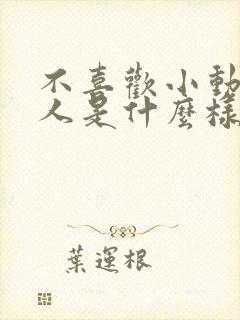 不喜歡小動
人是什麼樣
葉運根